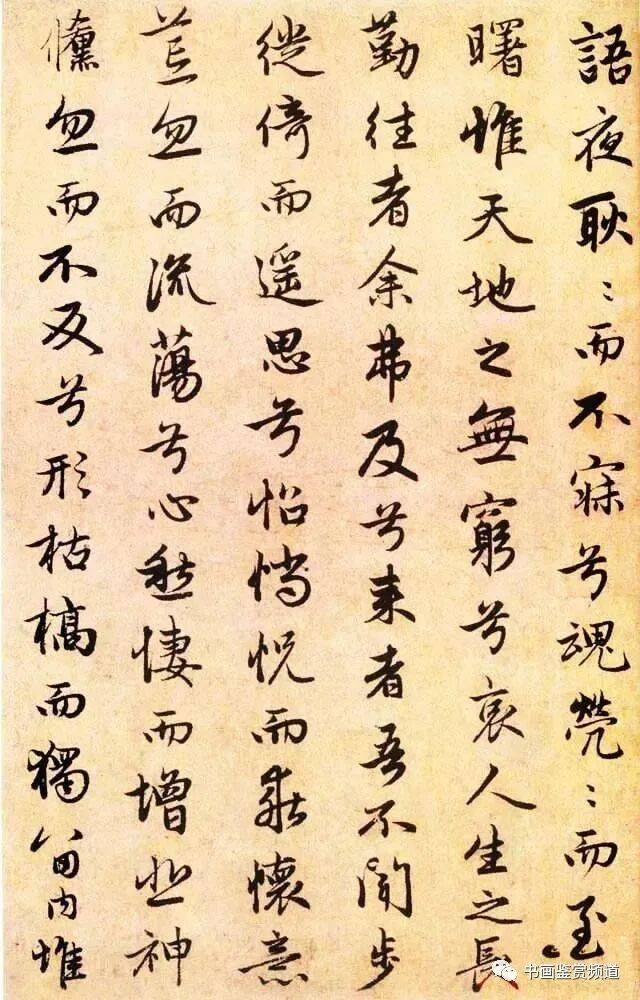 語夜耿〻而不寐兮魂煢〻而至
曙惟天地之無窮兮哀人生之長
勤往者余弗及兮来者吾不聞步
徙倚而遥思兮怊惝怳而乖懷意
荒忽而流蕩兮心愁悽而增悲神
儵忽而不反兮形枯槁而獨留内惟
书画鉴赏频道